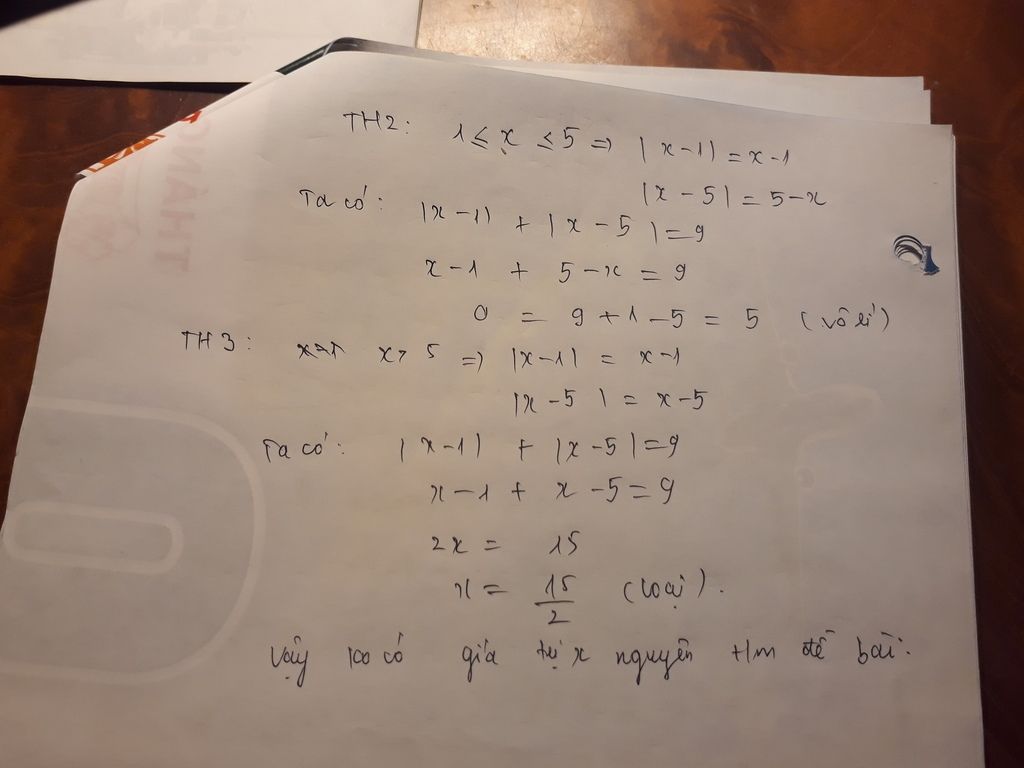 TH2: 1 ≤ x ≤ 5 => |x-1| = x-1
|x-5| = 5-x
Ta có: |x-1| + |x-5| = 9
x-1 + 5-x = 9
0 = 9+1-5 = 5 (vô lí)
TH3: x > 5 => |x-1| = x-1
|x-5| = x-5
Ta có: |x-1| + |x-5| = 9
x-1 + x-5 = 9
2x = 15
x = 15/2 (loại).
Vậy có giá trị x nguyên t/m đề bài.
THÁNG